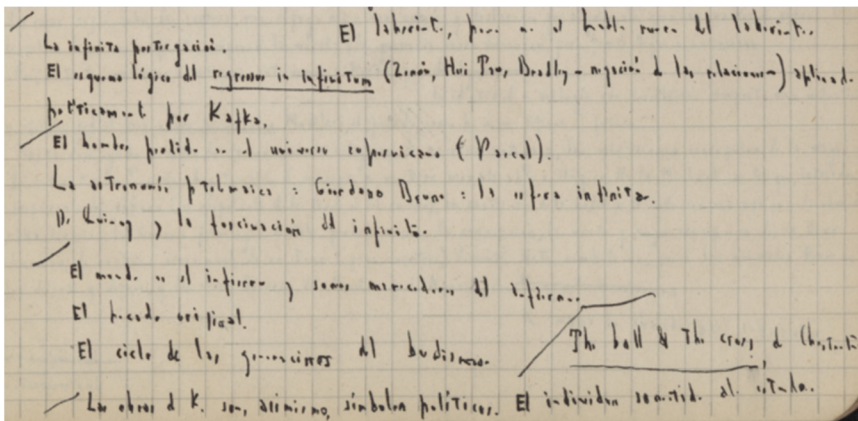 El laberinto, pero no se habla nunca del laberinto.
La infinita postergación.
El esquema lógico del regressus in infinitum (Zenón, Hui Tzu, Bradley - negación de las relaciones) aplicado
poéticamente por Kafka.
El hombre perdido en el universo copernicano (Pascal).
La astronomía ptolemaica : Giordano Bruno : la esfera infinita.
De Quincey y la fascinación del infinito.
El mundo es el infierno y somos merecedores del infierno.
El pecado original.
El ciclo de las generaciones del budismo.
The ball & the cross, de Chesterton
Las obras de K. son, asimismo, símbolos políticos. El individuo sometido al estado.